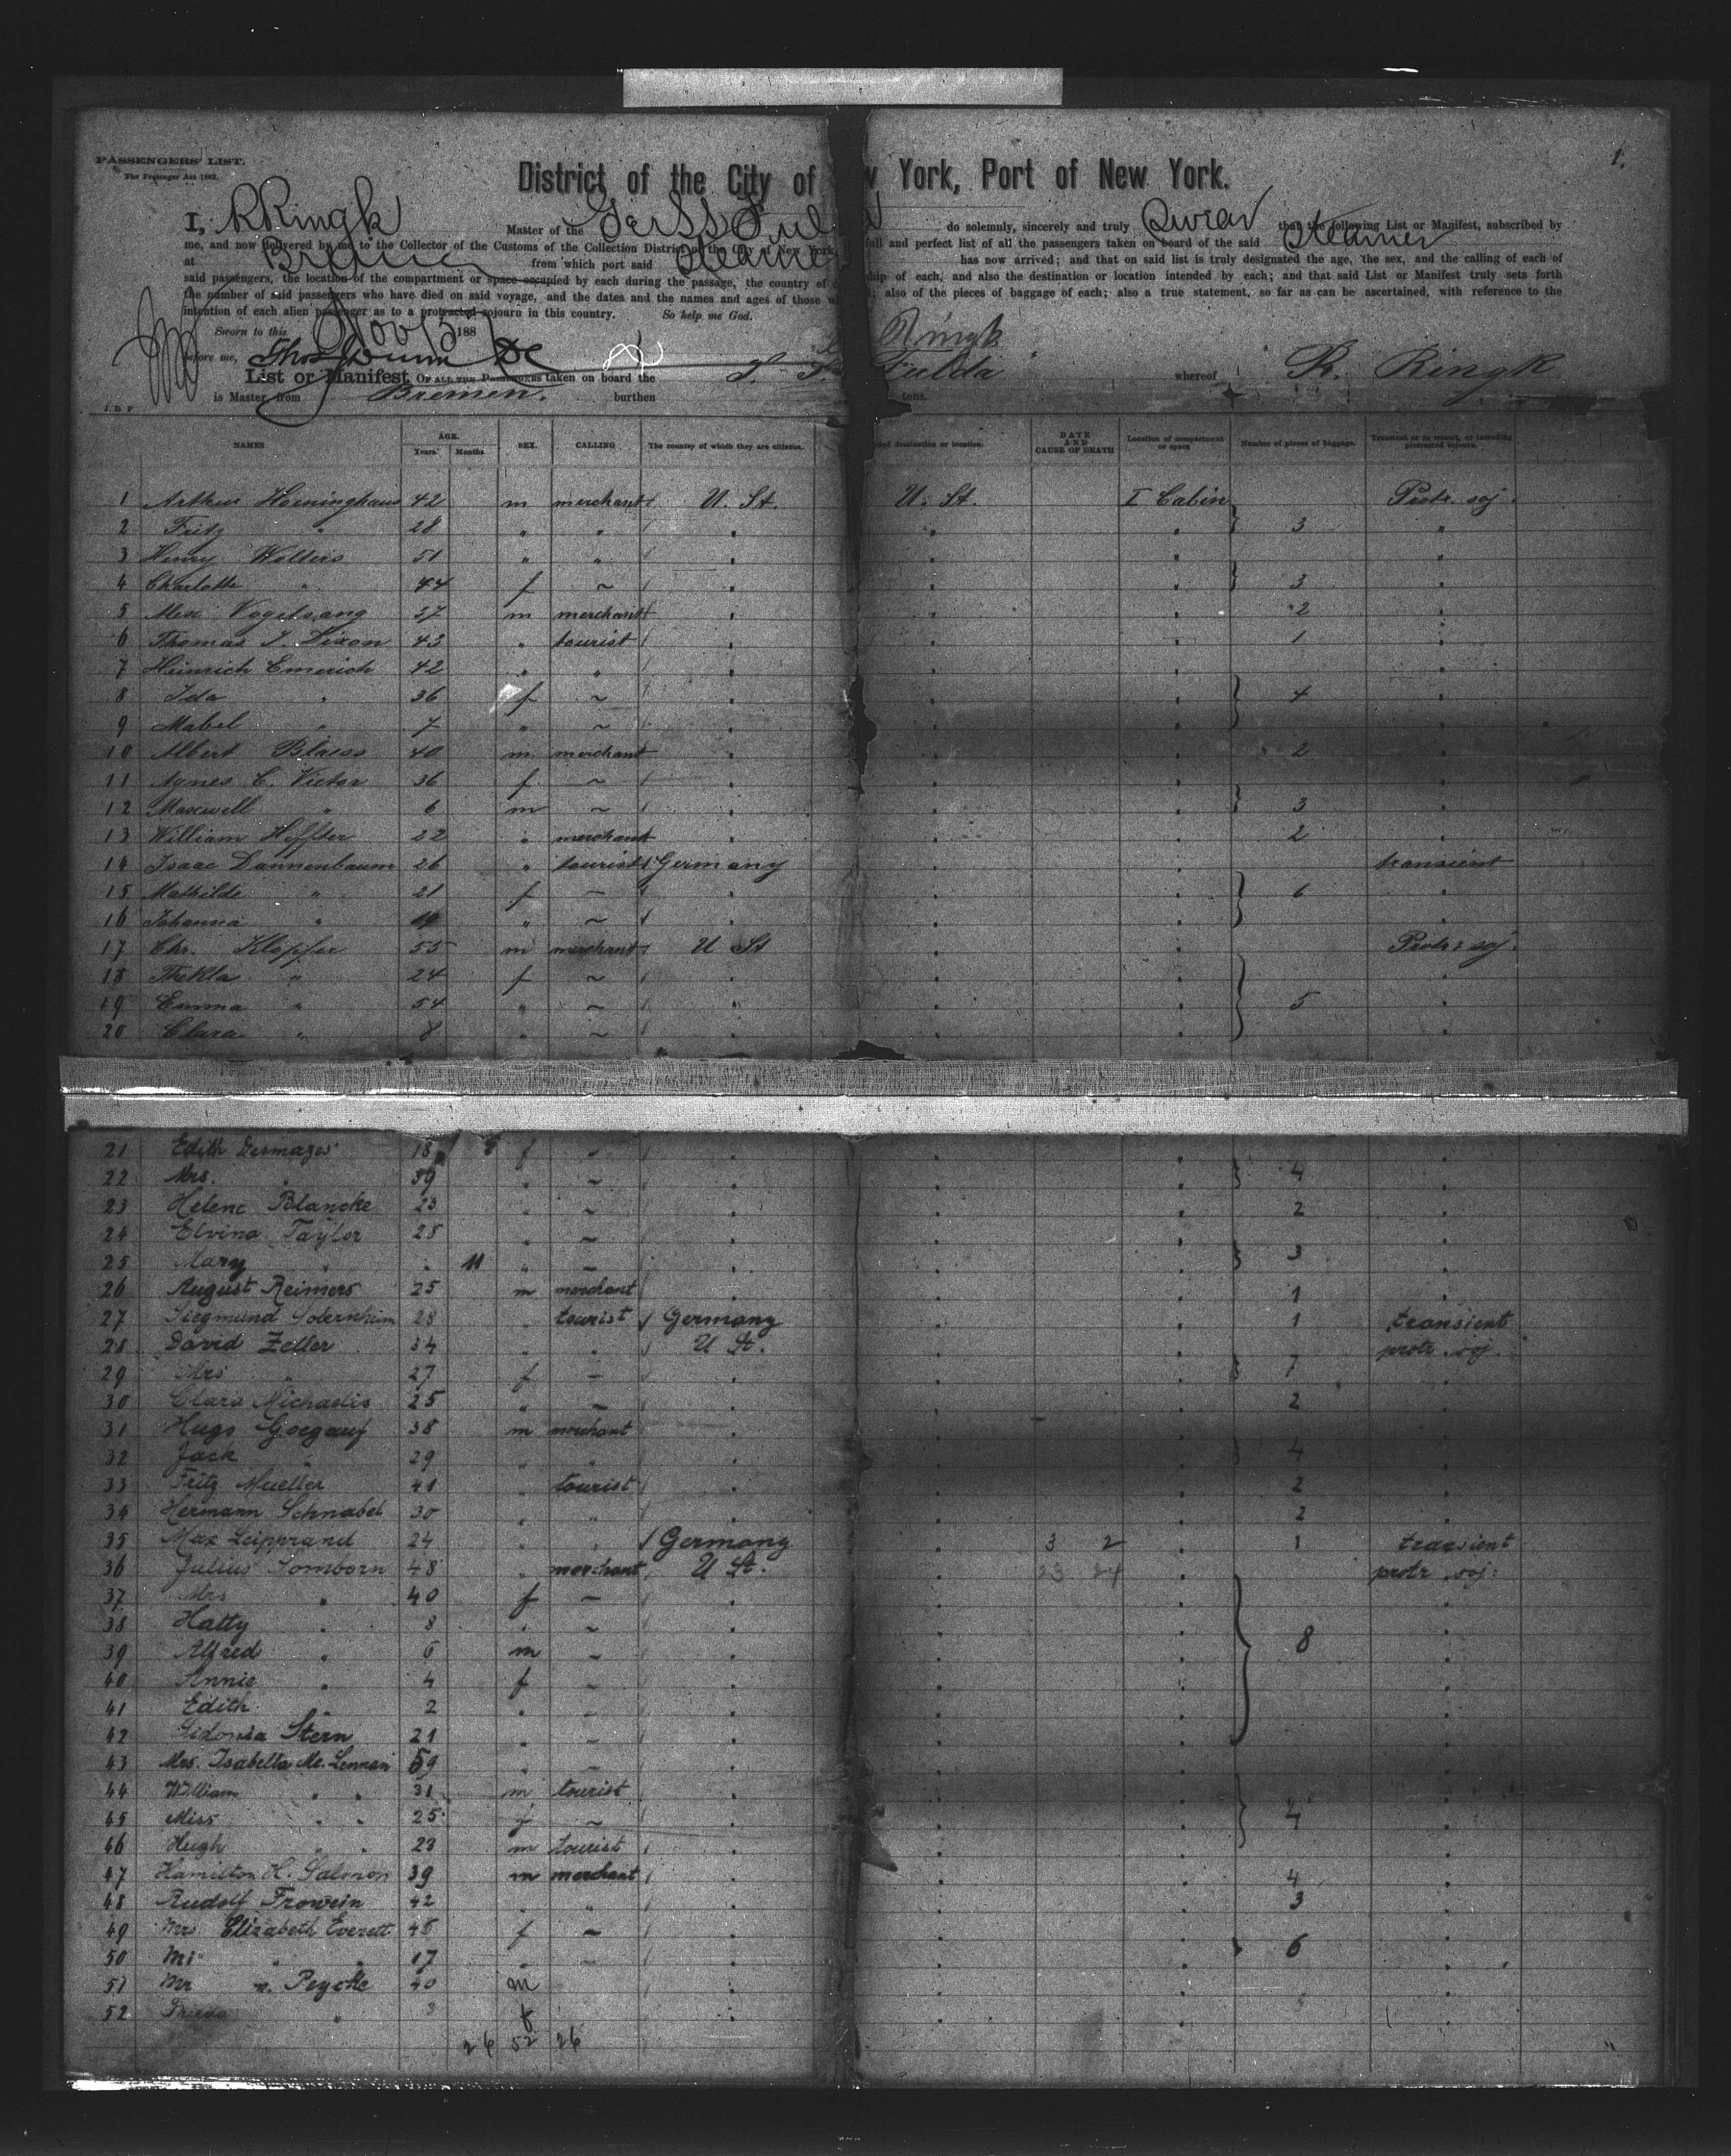 1.
PASSENGERS' LIST.
The Passenger Act 1882.
District of the City of w York, Port of New York.
I, RRingk Master of the Ger SS Ful a do solemnly, sincerely and truly Swear that the following List or Manifest, subscribed by
me, and now delivered by me to the Collector of the Customs of the Collection District of the City of New York full and perfect list of all the passengers taken on board of the said Steamer
at Bremen from which port said Steamer has now arrived; and that on said list is truly designated the age, the sex, and the calling of each of
said passengers, the location of the compartment or space occupied by each during the passage, the country of c ship of each, and also the destination or location intended by each; and that said List or Manifest truly sets forth
the number of said passengers who have died on said voyage, and the dates and the names and ages of those w ; also of the pieces of baggage of each; also a true statement, so far as can be ascertained, with reference to the
intention of each alien passenger as to a protracted sojourn in this country. So help me God.
Sworn to this Nov 15 188 Ringk
before me, Thos Dunn DC
List or Manifest OF ALL THE PASSENGERS taken on board the S. S. Fulda whereof R. Ringk
is Master, from Bremen. burthen tons.
J. D. P
NAMES AGE. Years. Months SEX. CALLING The country of which they are citizens. ded destination or location. DATE AND CAUSE OF DEATH Location of compartment or space Number of pieces of baggage. Transient or in transit, or intending protracted sojourn.
1 Arthur Horninghaus 42 m merchant U. St. U. St. I Cabin Protr. soj.
2 Fritz " 28 " " " " " } 3 "
3 Henry Wolters 51 " " " " " "
4 Charlotte " 44 f ~ " " " } 3 "
5 Alex Vogelsang 27 m merchant " " " 2 "
6 Thomas J. Dixon 43 " tourist " " " 1 "
7 Heinrich Emerich 42 " " " " " "
8 Ida " 36 f ~ " " " } 4 "
9 Mabel " 7 " ~ " " " "
10 Albert Blaess 40 m merchant " " " 2 "
11 Agnes C. Victor 36 f ~ " " " "
12 Maxwell " 6 m ~ " " " } 3 "
13 William Hoffter 22 " merchant " " " 2 "
14 Isaac Dannenbaum 26 " tourist Germany " " transient
15 Mathilde " 21 f ~ " " " } 6 "
16 Johanna " 19 " ~ " " " "
17 Chr. Klopfer 55 m merchant U St " " Protr: soj.
18 Thekla " 24 f ~ " " " "
19 Emma " 54 " ~ " " " } 5 "
20 Clara " 8 " ~ " " " "
21 Edith Desmazes 18 f ~ " " " "
22 Mrs. " 59 " ~ " " " } 4 "
23 Helene Blancke 23 " ~ " " " 2 "
24 Elvina Taylor 28 " ~ " " " "
25 Mary " " 11 " ~ " " " } 3 "
26 August Reimers 25 m merchant " " " 1 "
27 Siegmund Sobernheim 28 " tourist Germany " " 1 transient
28 David Zeller 34 " " U St. " " protr. soj.
29 Mrs " 27 f ~ " " " } 7 "
30 Clara Michaelis 25 " ~ " " " 2 "
31 Hugo Goegauf 38 m merchant " " " "
32 Jack " 29 " " " " " } 4 "
33 Fritz Mueller 41 " tourist " " " 2 "
34 Hermann Schnabel 30 " " " " " 2 "
35 Max Leipprand 24 " " Germany " 3 2 " 1 transient
36 Julius Somborn 48 " merchant U St. " 23 24 " protr. soj:
37 Mrs " 40 f ~ " " " "
38 Hatty " 8 " ~ " " " "
39 Alfred " 6 m ~ " " " } 8 "
40 Annie " 4 f ~ " " " "
41 Edith " 2 " ~ " " " "
42 Sidonia Stern 21 " ~ " " " "
43 Mrs. Isabella Mc. Lennan 59 " ~ " " " "
44 William " " 31 m tourist " " " "
45 Miss " " 25 f ~ " " " } 4 "
46 Hugh " " 23 m tourist " " " "
47 Hamilton H. Salmon 39 m merchant " " " 4 "
48 Rudolf Frowein 42 " " " " " 3 "
49 Mrs. Elizabeth Everett 48 f ~ " " " "
50 " " 17 " ~ " " " } 6 "
51 Mr Peycke 40 m " " " "
52 Frieda " 3 f " " "
26 52 26